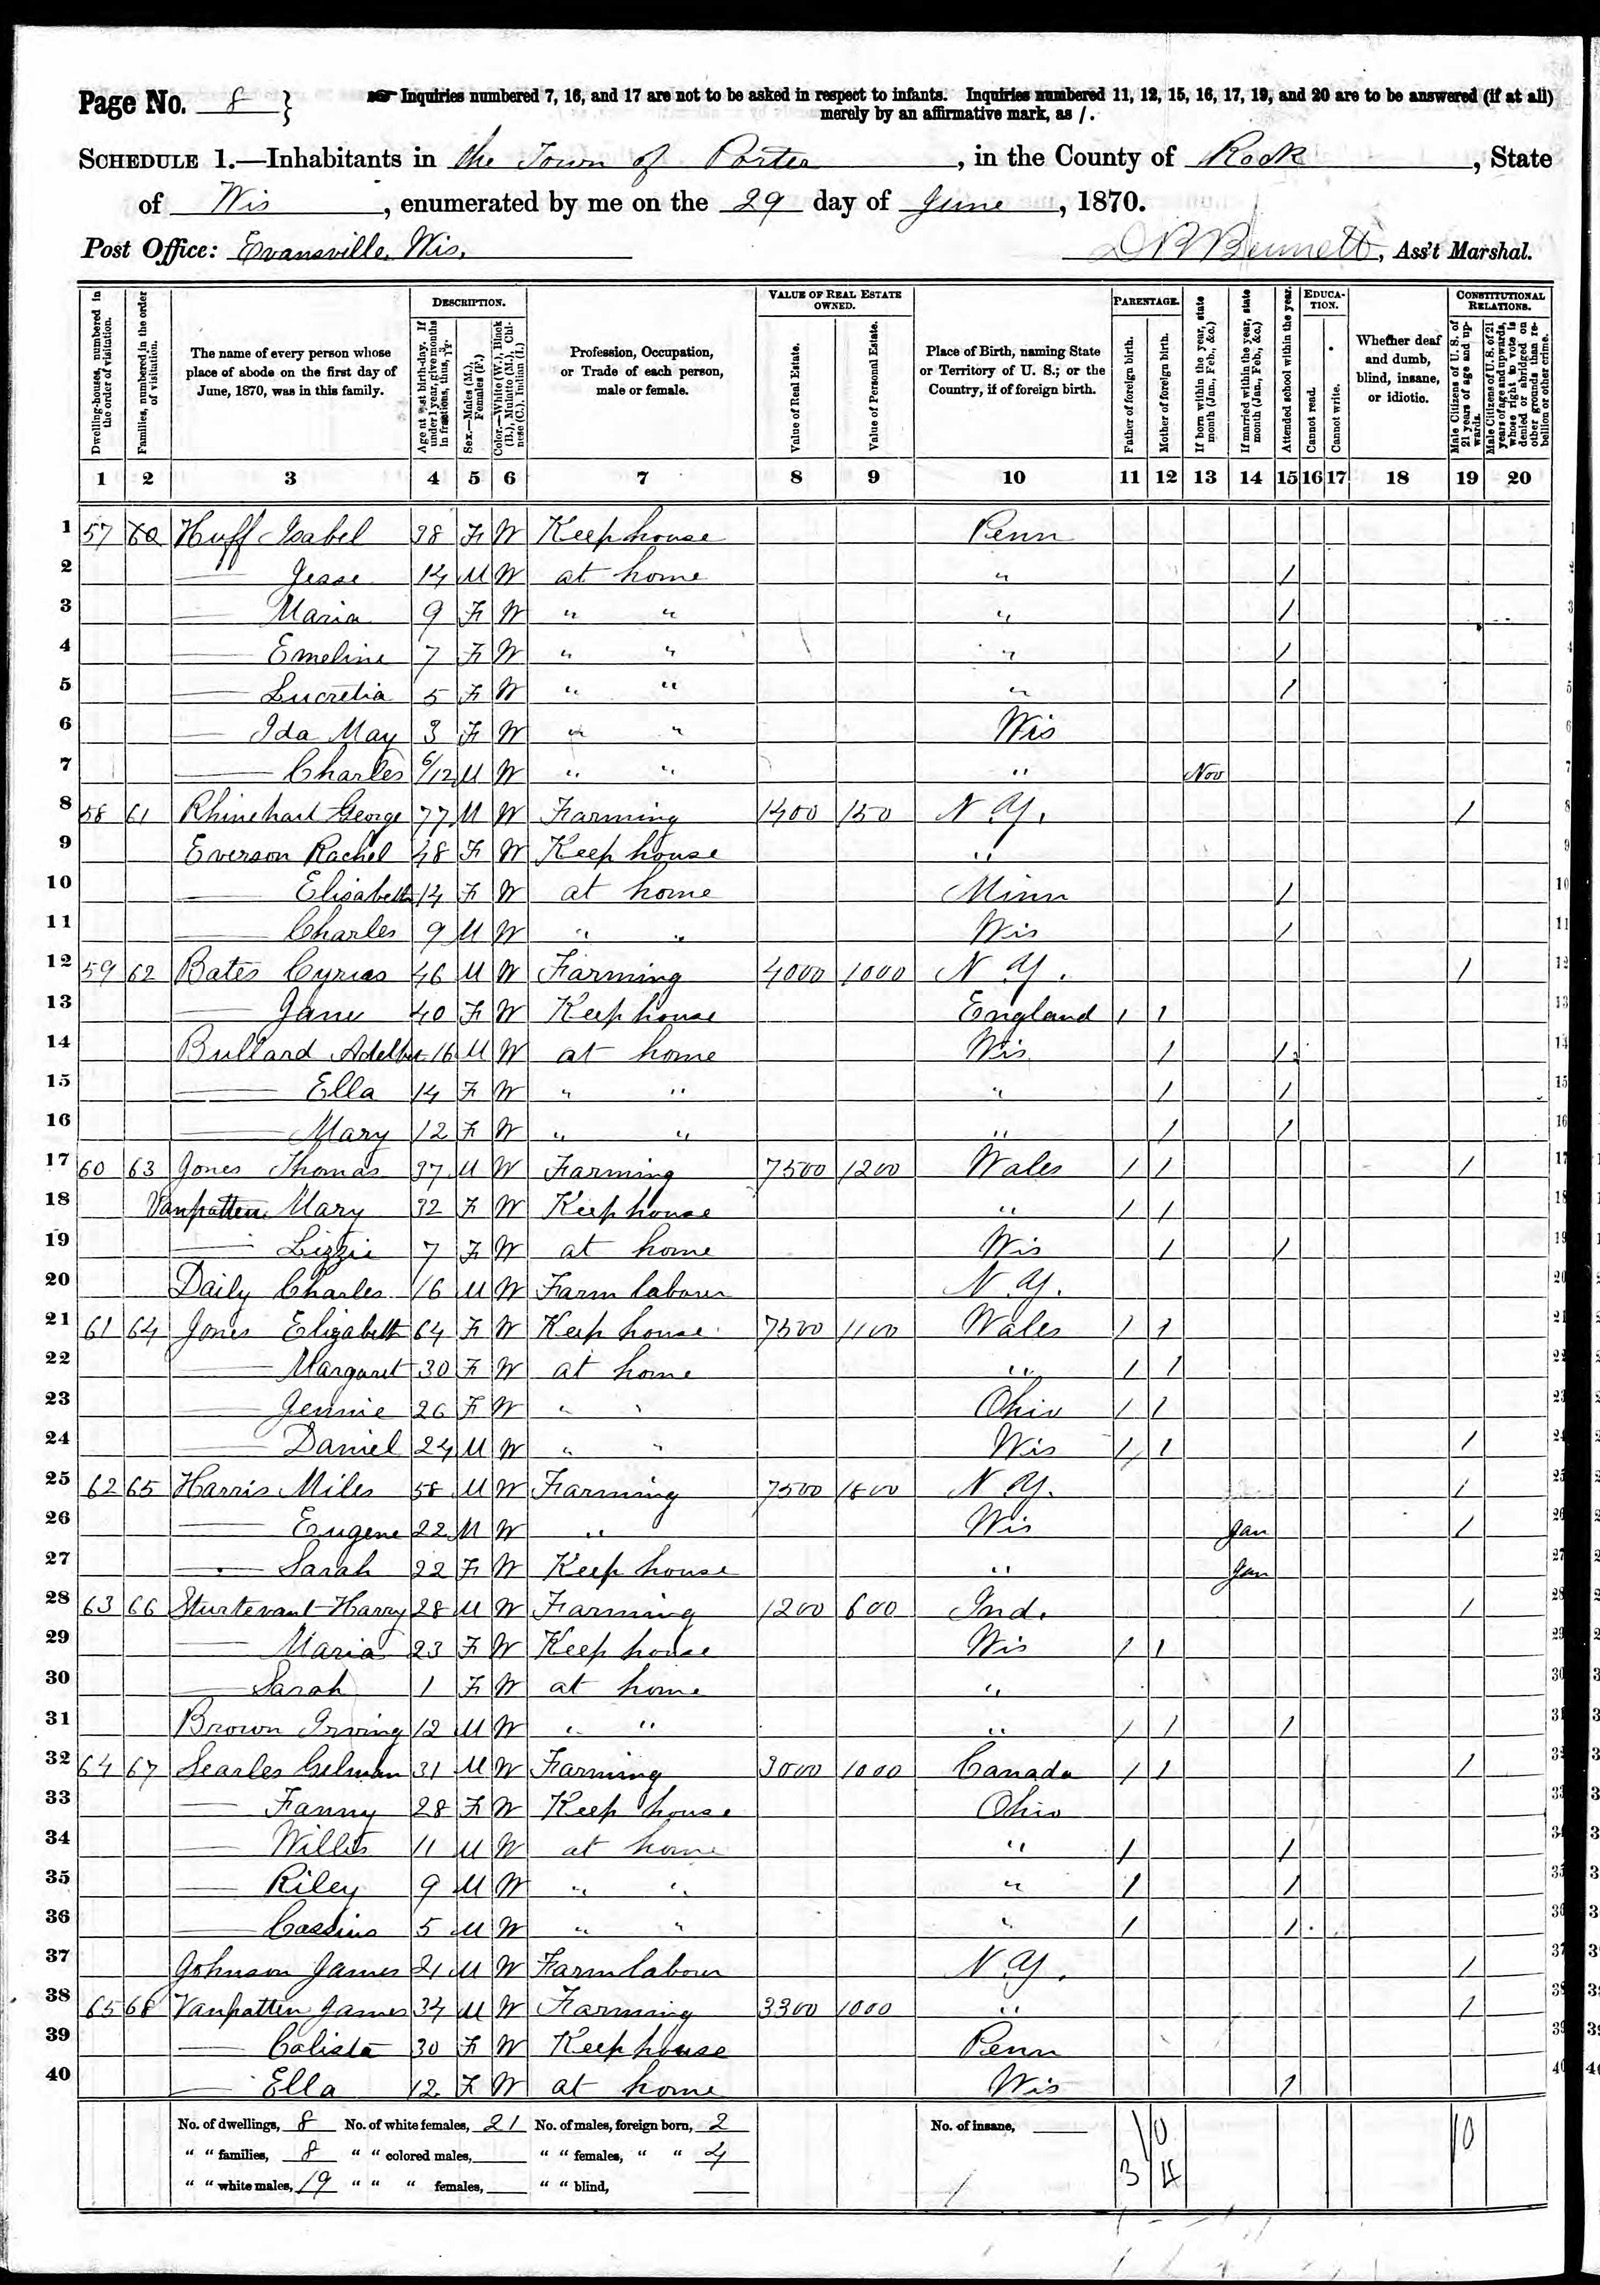 Page No. 8 }
Inquiries numbered 7, 16, and 17 are not to be asked in respect to infants. Inquiries numbered 11, 12, 15, 16, 17, 19, and 20 are to be answered (if at all)
merely by an affirmative mark, as /.
SCHEDULE 1.—Inhabitants in the Town of Porter, in the County of Rock, State
of Wis, enumerated by me on the 29 day of June, 1870.
Post Office: Evansville, Wis. D B Bennett, Ass't Marshal.
Dwelling-houses, numbered in the order of visitation.
Families, numbered in the order of visitation.
The name of every person whose place of abode on the first day of June, 1870, was in this family.
DESCRIPTION.
Age at last birth-day. If under 1 year, give months in fractions, thus, 3/12.
Sex.—Males (M.), Females (F.)
Color.—White (W.), Black (B.), Mulatto (M.), Chinese (C.), Indian (I.)
Profession, Occupation, or Trade of each person, male or female.
VALUE OF REAL ESTATE OWNED.
Value of Real Estate.
Value of Personal Estate.
Place of Birth, naming State or Territory of U. S.; or the Country, if of foreign birth.
PARENTAGE.
Father of foreign birth.
Mother of foreign birth.
If born within the year, state month (Jan., Feb., &c.)
If married within the year, state month (Jan., Feb., &c.)
Attended school within the year.
EDUCATION.
Cannot read.
Cannot write.
Whether deaf and dumb, blind, insane, or idiotic.
CONSTITUTIONAL RELATIONS.
Male Citizens of U. S. of 21 years of age and upwards.
Male Citizens of U. S. of 21 years of age and upwards, whose right to vote is denied or abridged on other grounds than rebellion or other crime.
1 2 3 4 5 6 7 8 9 10 11 12 13 14 15 16 17 18 19 20
1 57 60 Huff Isabel 38 F W Keep house Penn
2 — Jesse 14 M W at home " /
3 — Maria 9 F W " " " /
4 — Emeline 7 F W " " " /
5 — Lucretia 5 F W " " " /
6 — Ida May 3 F W " " Wis
7 — Charles 6/12 M W " " " Nov
8 58 61 Rhinehart George 77 M W Farming 1400 150 N.Y. /
9 Everson Rachel 48 F W Keep house "
10 — Elisabeth 14 F W at home Minn /
11 — Charles 9 M W " " Wis /
12 59 62 Bates Cyrus 46 M W Farming 4000 1000 N.Y. /
13 — Jane 40 F W Keep house England / /
14 Bullard Adelbert 16 M W at home Wis / /
15 — Ella 14 F W " " " / /
16 — Mary 12 F W " " " / /
17 60 63 Jones Thomas 37 M W Farming 7500 1200 Wales / / /
18 Vanpatten Mary 32 F W Keep house " / /
19 — Lizzie 7 F W at home Wis / /
20 Daily Charles 16 M W Farm labour N.Y.
21 61 64 Jones Elizabeth 64 F W Keep house 7500 1100 Wales / /
22 — Margaret 30 F W at home " / /
23 — Jennie 26 F W " " Ohio / /
24 — Daniel 24 M W " " Wis / / /
25 62 65 Harris Miles 58 M W Farming 7500 1800 N.Y. /
26 — Eugene 22 M W " Wis Jan /
27 — Sarah 22 F W Keep house " Jan
28 63 66 Sturtevant Harry 28 M W Farming 1200 600 Ind. /
29 — Maria 23 F W Keep house Wis / /
30 — Sarah 1 F W at home "
31 Brown Irving 12 M W " " " / / /
32 64 67 Searles Gelman 31 M W Farming 3000 1000 Canada / / /
33 — Fanny 28 F W Keep house Ohio
34 — Willis 11 M W at home " / /
35 — Riley 9 M W " " " / /
36 — Cassius 5 M W " " " / /
37 Johnson James 21 M W Farm labour N.Y. /
38 65 68 Vanpatten James 34 M W Farming 3300 1000 " /
39 — Calista 30 F W Keep house Penn
40 — Ella 12 F W at home Wis /
No. of dwellings, 8 No. of white females, 21 No. of males, foreign born, 2 No. of insane, 10 10
" " families, 8 " " colored males, " " females, " " 4
" " white males, 19 " " " females, " " blind, 3 4